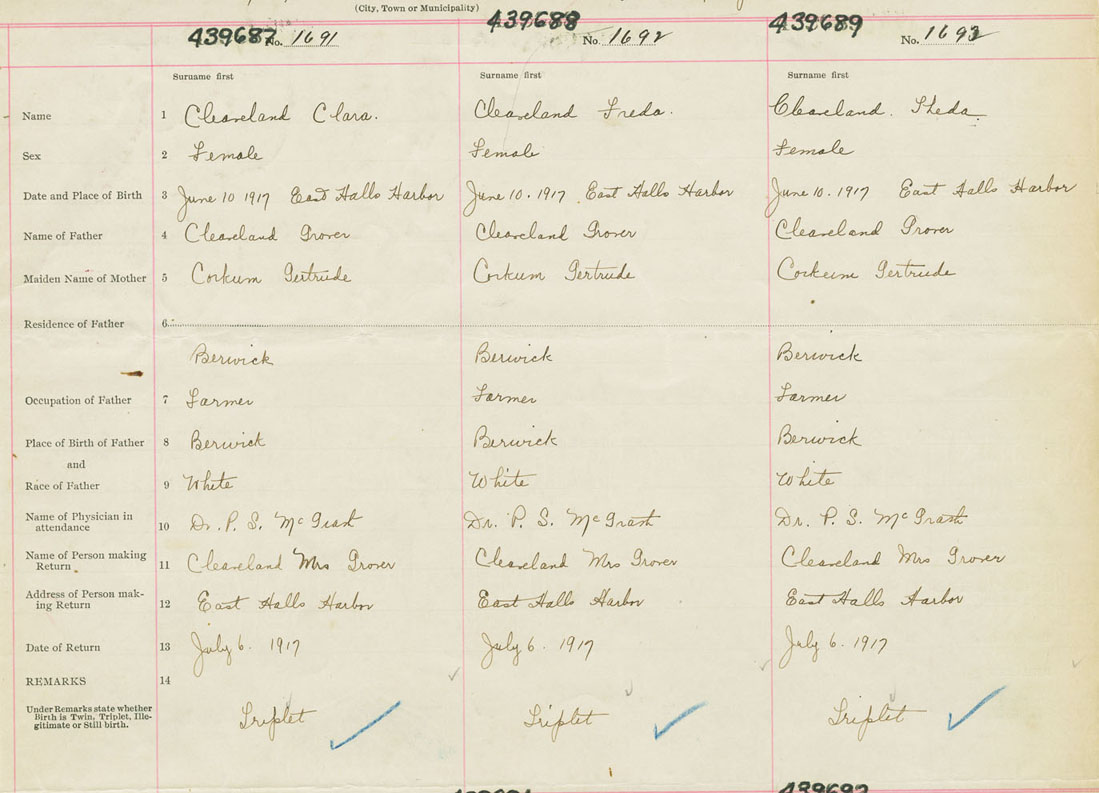 (City, Town or Municipality)
439687 No. 1691 439688 No. 1692 439689 No. 1693
Surname first Surname first Surname first
Name 1 Cleaveland Clara. Cleaveland Freda. Cleaveland. Sheda.
Sex 2 Female Female Female
Date and Place of Birth 3 June 10 1917 East Halls Harbor June 10. 1917 East Halls Harbor June 10. 1917 East Halls Harbor
Name of Father 4 Cleaveland Grover Cleaveland Grover Cleaveland Grover
Maiden Name of Mother 5 Corkum Gertrude Corkum Gertrude Corkum Gertrude
Residence of Father 6
Berwick Berwick Berwick
Occupation of Father 7 Farmer Farmer Farmer
Place of Birth of Father 8 Berwick Berwick Berwick
and
Race of Father 9 White White White
Name of Physician in
attendance 10 Dr. P. S. McGrath Dr. P. S. McGrath Dr. P. S. McGrath
Name of Person making
Return 11 Cleaveland Mrs Grover Cleaveland Mrs Grover Cleaveland Mrs Grover
Address of Person mak-
ing Return 12 East Halls Harbor East Halls Harbor East Halls Harbor
Date of Return 13 July 6. 1917 July 6. 1917 July 6. 1917
REMARKS 14
Under Remarks state whether
Birth is Twin, Triplet, Ille-
gitimate or Still birth. Triplet Triplet Triplet